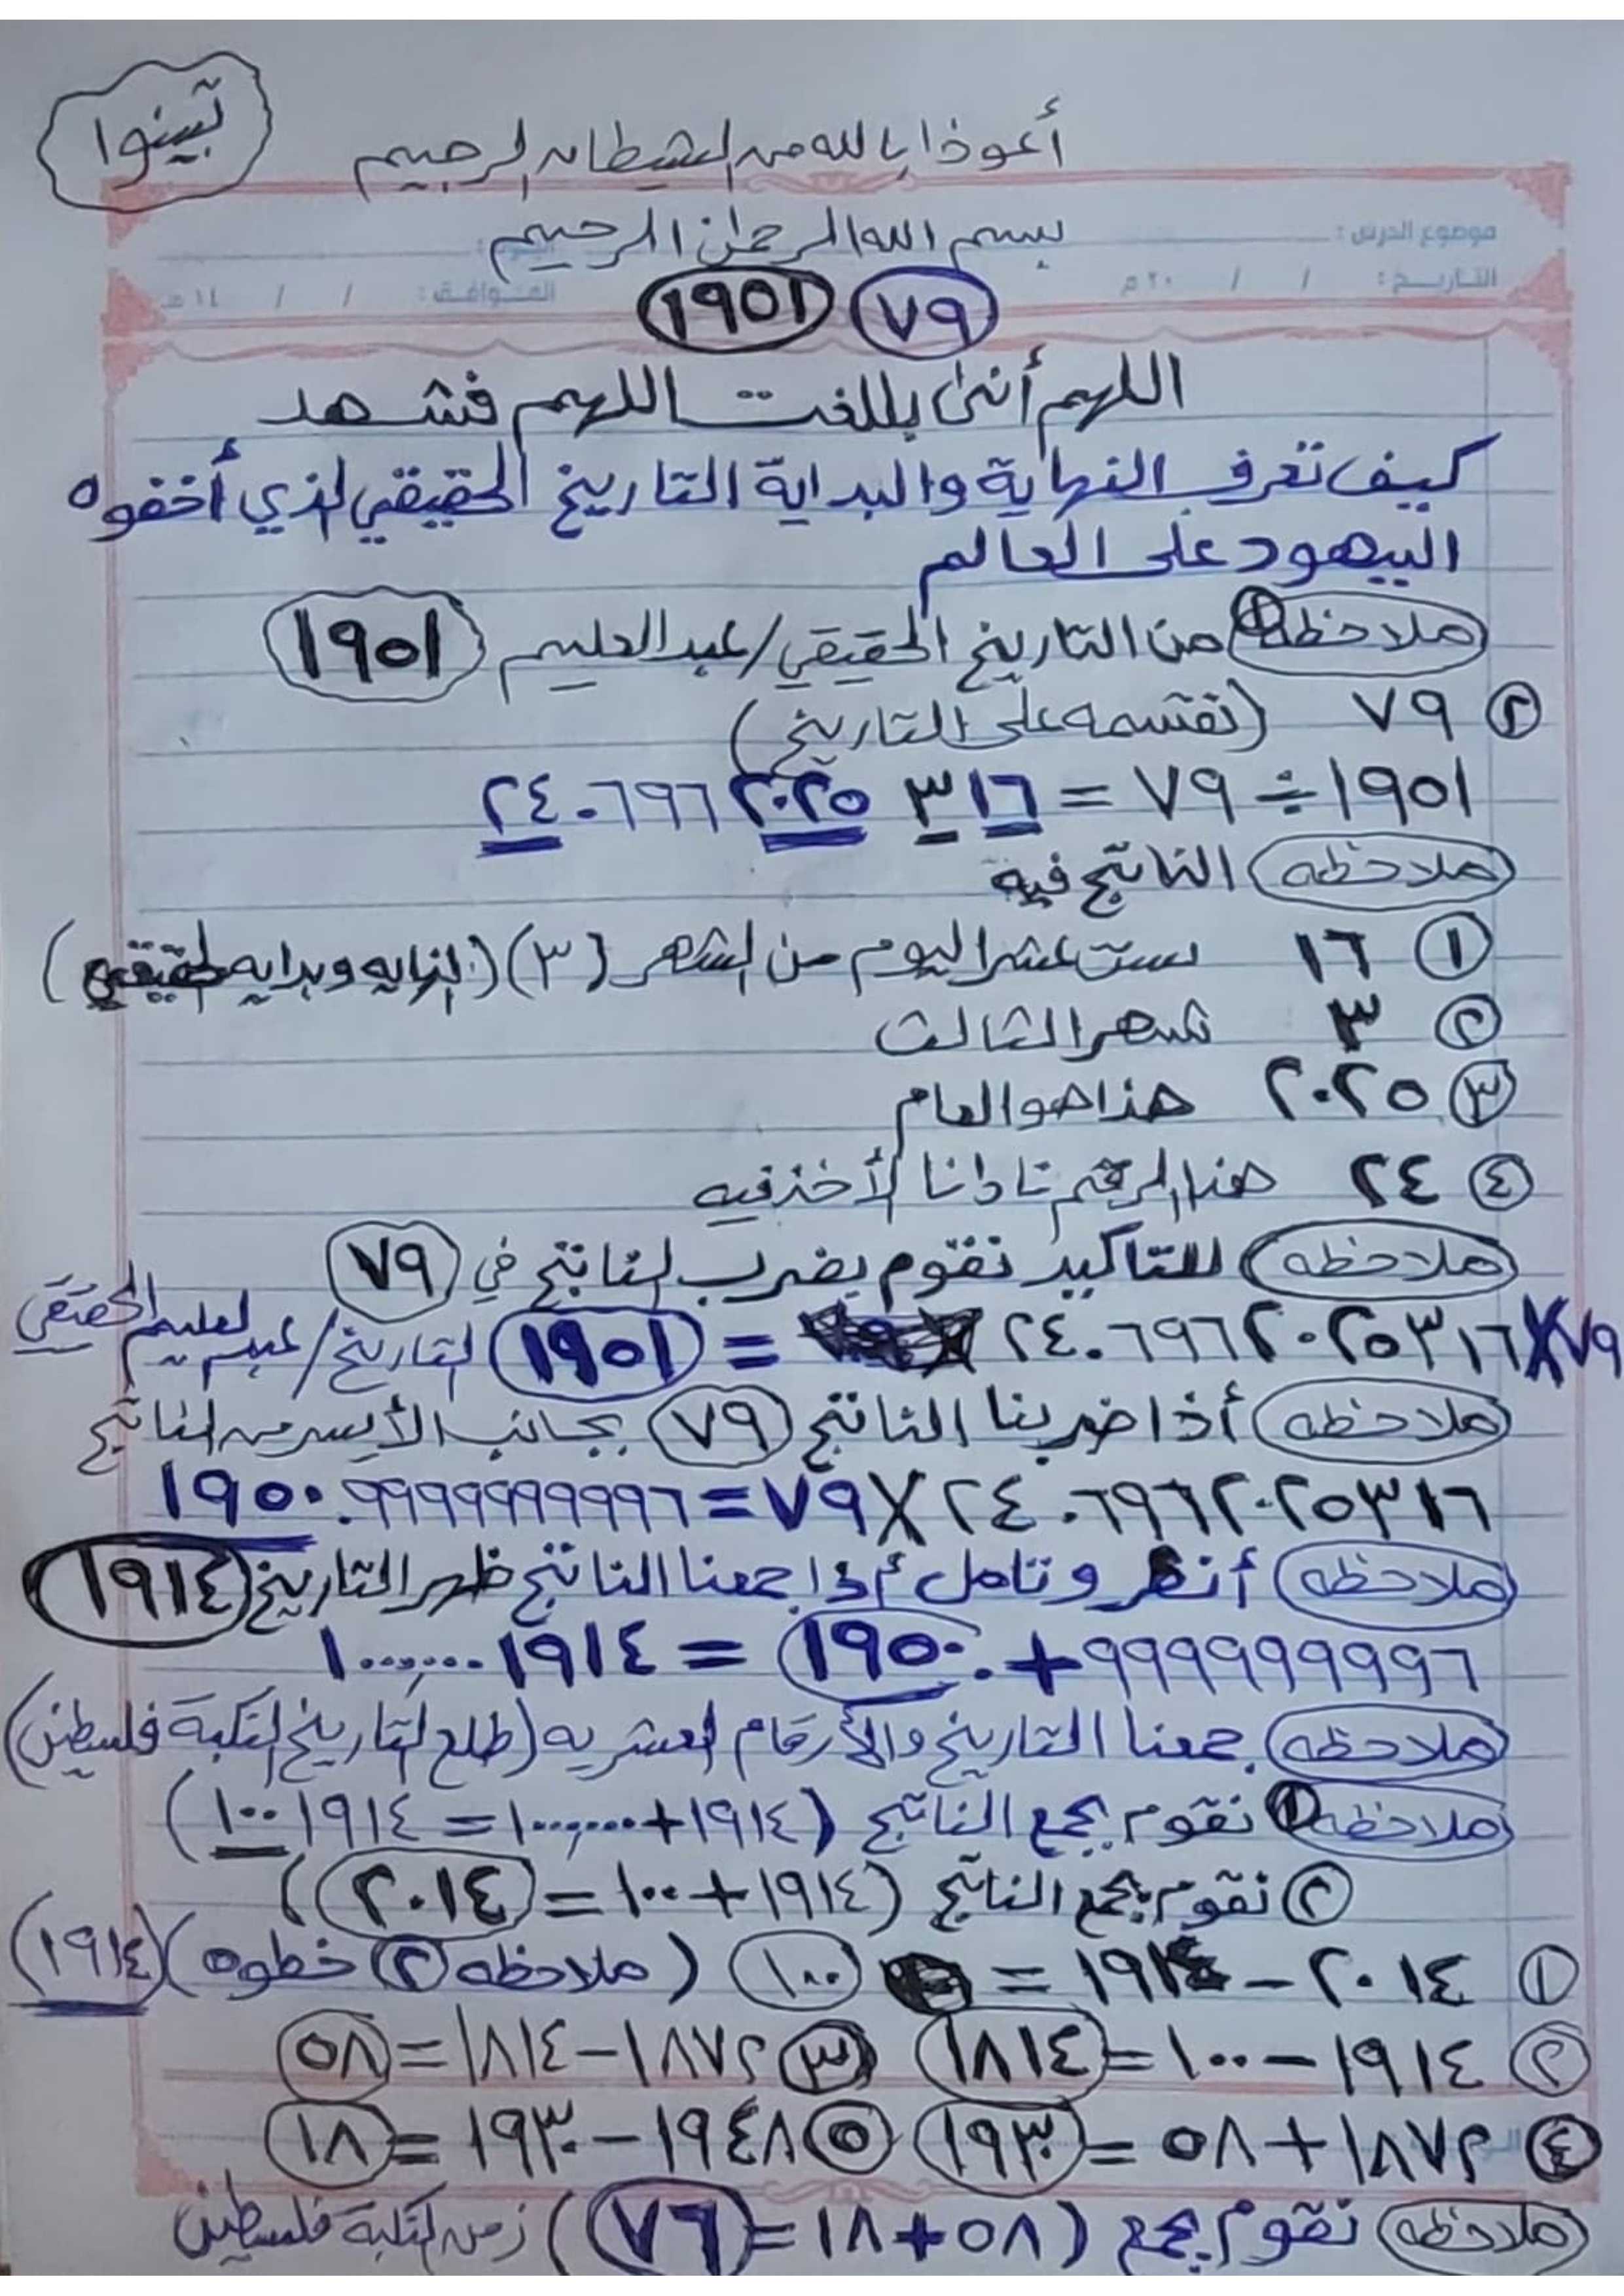 تبينوا
أعوذ بالله من الشيطان الرجيم
بسم الله الرحمن الرحيم
موضوع الدرس :
التاريخ : / / ٢٠ م الموافق : / / ١٤ هـ
٧٩ ١٩٥١
اللهم أنى بللغت اللهم فشهد
كيف تعرف النهاية والبداية التاريخ الحقيقي لذي أخفوه
اليهود على العالم
ملاحظه ١ من التاريخ الحقيقي/عبد العليم ١٩٥١
٢ ٧٩ (نقسمه على التاريخ)
١٩٥١ ÷ ٧٩ = ٢٤.٦٩٦٢٠٢٥٣١٦
ملاحظه الناتج فية
١ ١٦ ست عشر اليوم من الشهر (٣) (النهايه وبدايه الحقيقي)
٢ ٣ شهر الثالث
٣ ٢٠٢٥ هذا هو العام
٤ ٢٤ هذا الرقم
ملاحظه للتاكيد نقوم بضرب الناتج في ٧٩
٧٩ X ٢٤.٦٩٦٢٠٢٥٣١٦ = ١٩٥١ التاريخ/عبد العليم الحقيقي
ملاحظه أذا ضربنا الناتج ٧٩ بجانب الأيسر من الناتج
٢٤.٦٩٦٢٠٢٥٣١٦ X ٧٩ = ١٩٥٠.٩٩٩٩٩٩٩٩٩٦
ملاحظه أنظر وتامل أذا جمعنا الناتج ظهر التاريخ ١٩١٤
٩٩٩٩٩٩٩٩٩٦ + ١٩٥٠. = ١٠٠٠٠٠٠١٩١٤
ملاحظه جمعنا التاريخ والأرقام العشريه (طلع التاريخ لنكبة فلسطين)
ملاحظه ١ نقوم بجمع الناتج (١٩١٤+١٠٠٠٠٠٠ = ١٩١٤ ١٠٠)
٢ نقوم بجمع الناتج (١٩١٤+١٠٠ = ٢٠١٤)
١ ٢٠١٤ - ١٩١٤ = ١٠٠ (ملاحظه ٢ خطوه) (١٩١٤)
٢ ١٩١٤ - ١٠٠ = ١٨١٤ ٣ ١٨٧٢ - ١٨١٤ = ٥٨
٤ ١٨٧٢ + ٥٨ = ١٩٣٠ ٥ ١٩٤٨ - ١٩٣٠ = ١٨
ملاحظه نقوم بجمع (٥٨+١٨ = ٧٦) زمن نكبة فلسطين